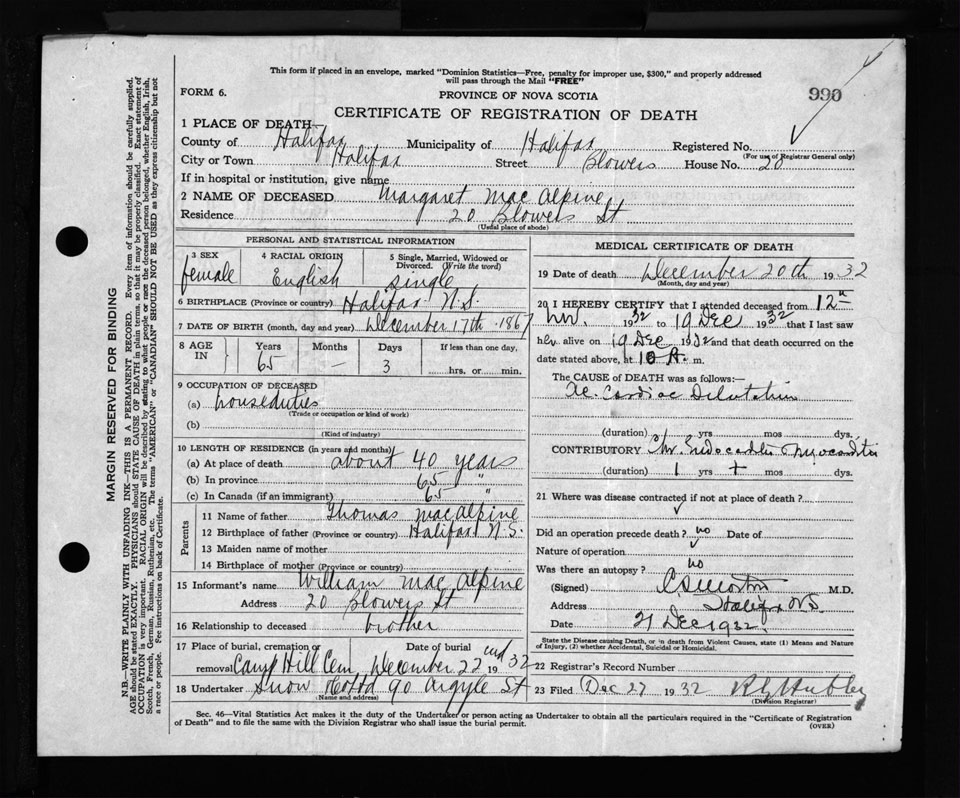 This form if placed in an envelope, marked "Dominion Statistics—Free, penalty for improper use, $300," and properly addressed
will pass through the Mail "FREE"
FORM 6.
PROVINCE OF NOVA SCOTIA
990
CERTIFICATE OF REGISTRATION OF DEATH
1 PLACE OF DEATH—
County of Halifax Municipality of Halifax Registered No.
(For use of Registrar General only)
City or Town Halifax Street Blowers House No. 20
If in hospital or institution, give name
2 NAME OF DECEASED Margaret Mac Alpine
Residence 20 Blowers St
(Usual place of abode)
PERSONAL AND STATISTICAL INFORMATION
3 SEX 4 RACIAL ORIGIN 5 Single, Married, Widowed or
Divorced. (Write the word)
female English single
6 BIRTHPLACE (Province or country) Halifax N.S.
7 DATE OF BIRTH (month, day and year) December 17th 1867
8 AGE IN Years Months Days If less than one day,
65 — 3 hrs. or min.
9 OCCUPATION OF DECEASED
(a) houseduties
(Trade or occupation or kind of work)
(b)
(Kind of industry)
10 LENGTH OF RESIDENCE (in years and months)
(a) At place of death about 40 years
(b) In province 65 "
(c) In Canada (if an immigrant) 65 "
Parents
11 Name of father Thomas Mac Alpine
12 Birthplace of father (Province or country) Halifax N.S.
13 Maiden name of mother
14 Birthplace of mother (Province or country)
15 Informant's name William Mac Alpine
Address 20 Blowers St
16 Relationship to deceased brother
17 Place of burial, cremation or removal Camp Hill Cem Date of burial December 22nd 1932
18 Undertaker Snow Co Ltd 90 Argyle St
(Name and address)
MEDICAL CERTIFICATE OF DEATH
19 Date of death December 20th 1932
(Month, day and year)
20 I HEREBY CERTIFY that I attended deceased from 12
Nov. 1932 to 19 Dec 1932 that I last saw
her alive on 19 Dec 1932 and that death occurred on the
date stated above, at 10 A. m.
The CAUSE OF DEATH was as follows:—
Ac. Cardiac Dilatation
(duration) yrs mos dys.
CONTRIBUTORY Chr. Endocarditis Myocarditis
(duration) 1 yrs + mos dys.
21 Where was disease contracted if not at place of death?
Did an operation precede death? no Date of
Nature of operation
Was there an autopsy? no
(Signed) M.D.
Address Halifax NS
Date 21 Dec 1932
State the Disease causing Death, or in death from Violent Causes, state (1) Means and Nature
of Injury, (2) whether Accidental, Suicidal or Homicidal.
22 Registrar's Record Number
23 Filed Dec 27 1932
(Division Registrar)
Sec. 46—Vital Statistics Act makes it the duty of the Undertaker or person acting as Undertaker to obtain all the particulars required in the "Certificate of Registration
of Death" and to file the same with the Division Registrar who shall issue the burial permit.
(OVER)
MARGIN RESERVED FOR BINDING
N.B.—WRITE PLAINLY WITH UNFADING INK—THIS IS A PERMANENT RECORD. Every item of information should be carefully supplied.
AGE should be stated EXACTLY. PHYSICIANS should STATE CAUSE OF DEATH in plain terms, so that it may be properly classified. Exact statement of
OCCUPATION is very important. RACIAL ORIGIN will be described by stating to what people or race the deceased person belonged, whether English, Irish,
Scotch, French, German, Russian, Ruthenian, etc. The terms "AMERICAN" or "CANADIAN" SHOULD NOT BE USED as they express citizenship but not
a race or people. See instructions on back of Certificate.